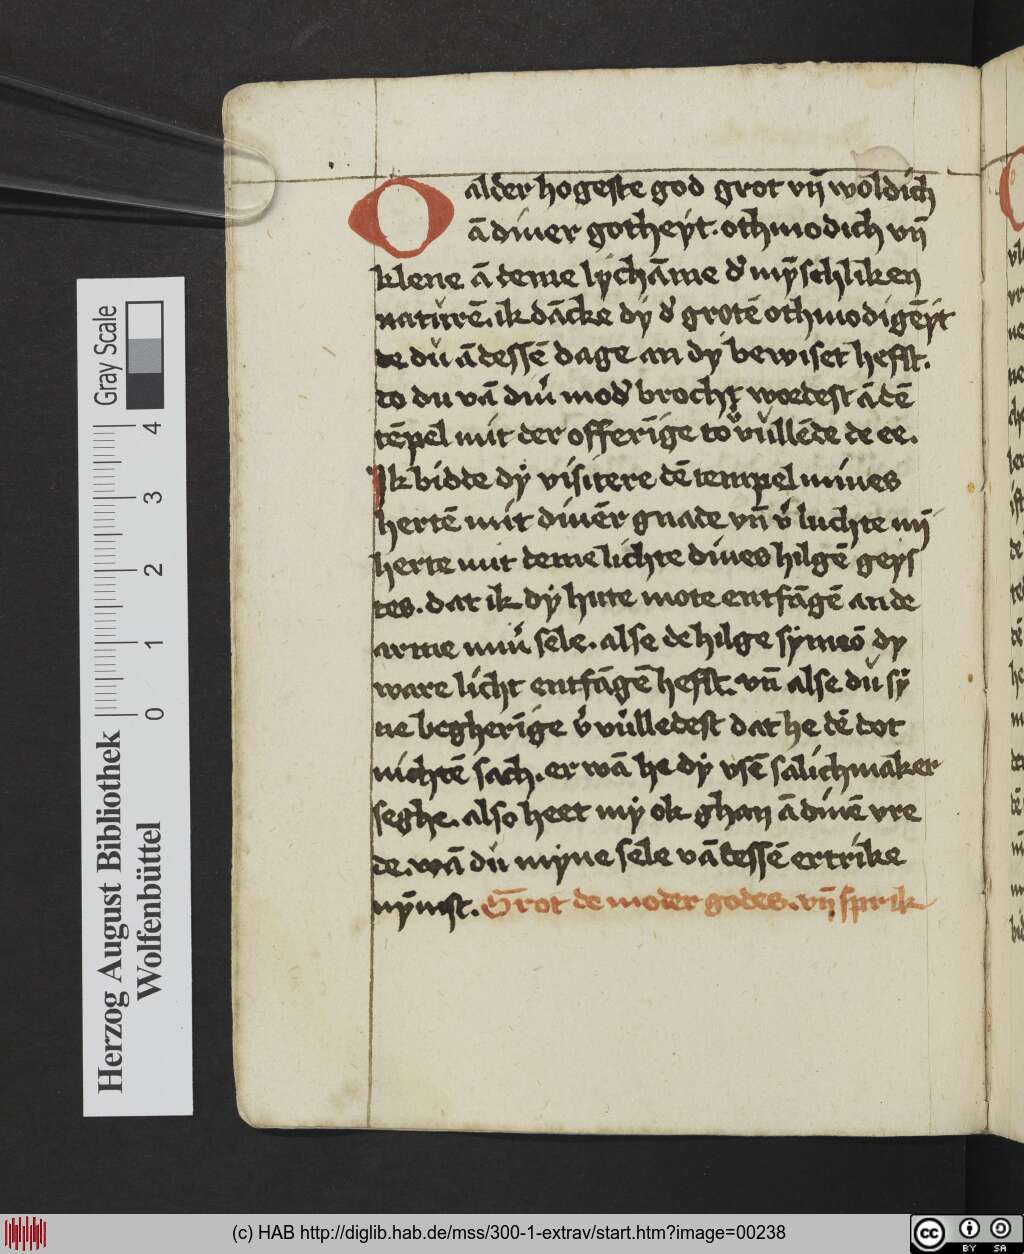 O alder hogeste god grot vn̄ woldich
ā diner gotheyt. othmodich vn̄
klene ā deme lychāme d' mȳschliken
naturē. ik dācke dy d' grotē othmodigēyt
de du ā dessē dage an dy bewiset hefst.
do du vā din' mod' brocht wordest ā dē
tēpel mit der offerīge to vullēde de ee.
Ik bidde dy visitere dē tempel mines
hertē mit dinēr gnade vn̄ v'luchte mī
herte mit deme lichte dines hilgē geys
tes. dat ik dy hute mote entfāgē an de
arme min' sele. alse de hilge symeō dy
ware licht entfāgē hefft. vn̄ alse du sy
ne begherīge v'vulledest dat he dē dot
nichtē sach. er wā he dy vsē salichmaker
seghe. also heet my ok ghan ā dinē vre
de. wā du myne sele vā dessē ertrike
nȳmst. Grot de moder godes. vn̄ sprik
Herzog August Bibliothek
Wolfenbüttel
0 1 2 3 4
Gray Scale
(c) HAB http://diglib.hab.de/mss/300-1-extrav/start.htm?image=00238
cc BY SA